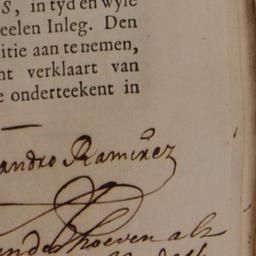 S, in tyd en wyle
eelen Inleg. Den
itie aan te nemen,
nt verklaart van
e onderteekent in
andro Ramirez
inderhoeven als